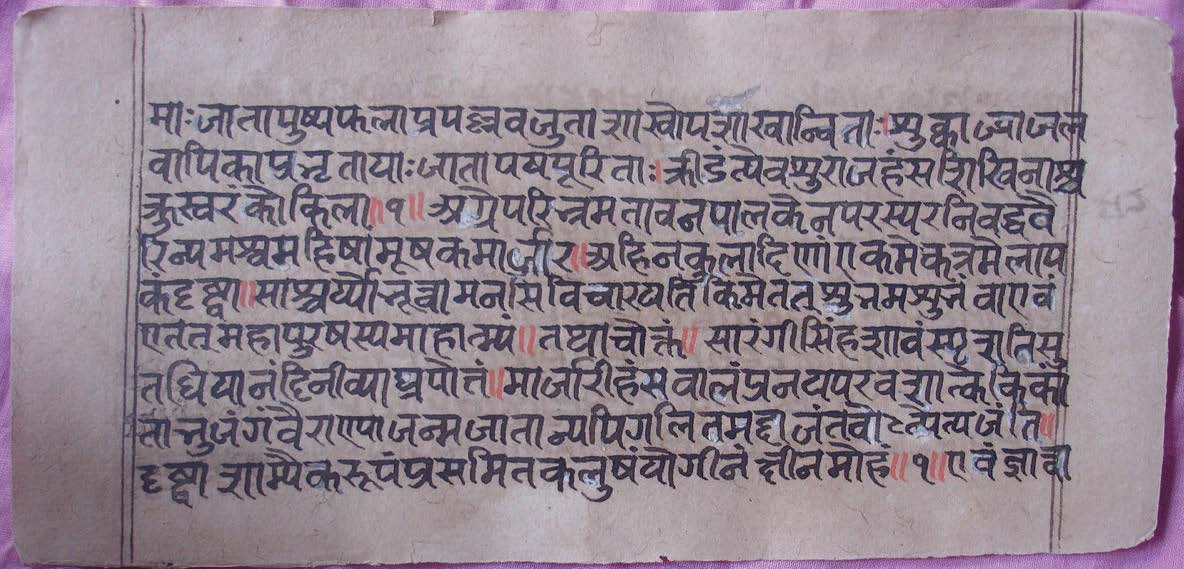 माः जाता पुष्पफला प्रपल्लवजुता शाखोपशाखान्विताः। शुक्काज्याजल
वापिकाप्रभृतायाः जाता पयपूरिताः। क्रीडंत्येवशुराजहंस शिखिनाश्च
क्रुस्वरं कोकिला॥१॥ अग्रे परिभ्रमता वनपालकेन परस्परनिवद्धवै
रिन्यमश्वमहिषां मूषकमार्जार॥ अहिनकुलादिणां एकमेकत्रमेलाप
कं दृष्ट्वा॥ साश्चर्यो भूत्वा मनसि विचारयति किमेतत् शुभमशुभं वा एवं
एतत महापुरुषस्य माहात्म्यं॥ तथा चोक्तं॥ सारंगी सिंहशावं स्पृशति सु
तधिया नंदिनी व्याघ्रपोतं॥ मार्जारी हंसवालं प्रनयपरवशात्केकिकां
ता भुजंगं वैराण्याजन्मजातान्यपि गलितमदा जंतवोऽत्पे त्यजंति॥
दृष्ट्वा शाम्यैकरूपं प्रसमितकलुषं योगीनं क्षीनमोहं॥१॥ एवं ज्ञात्वा